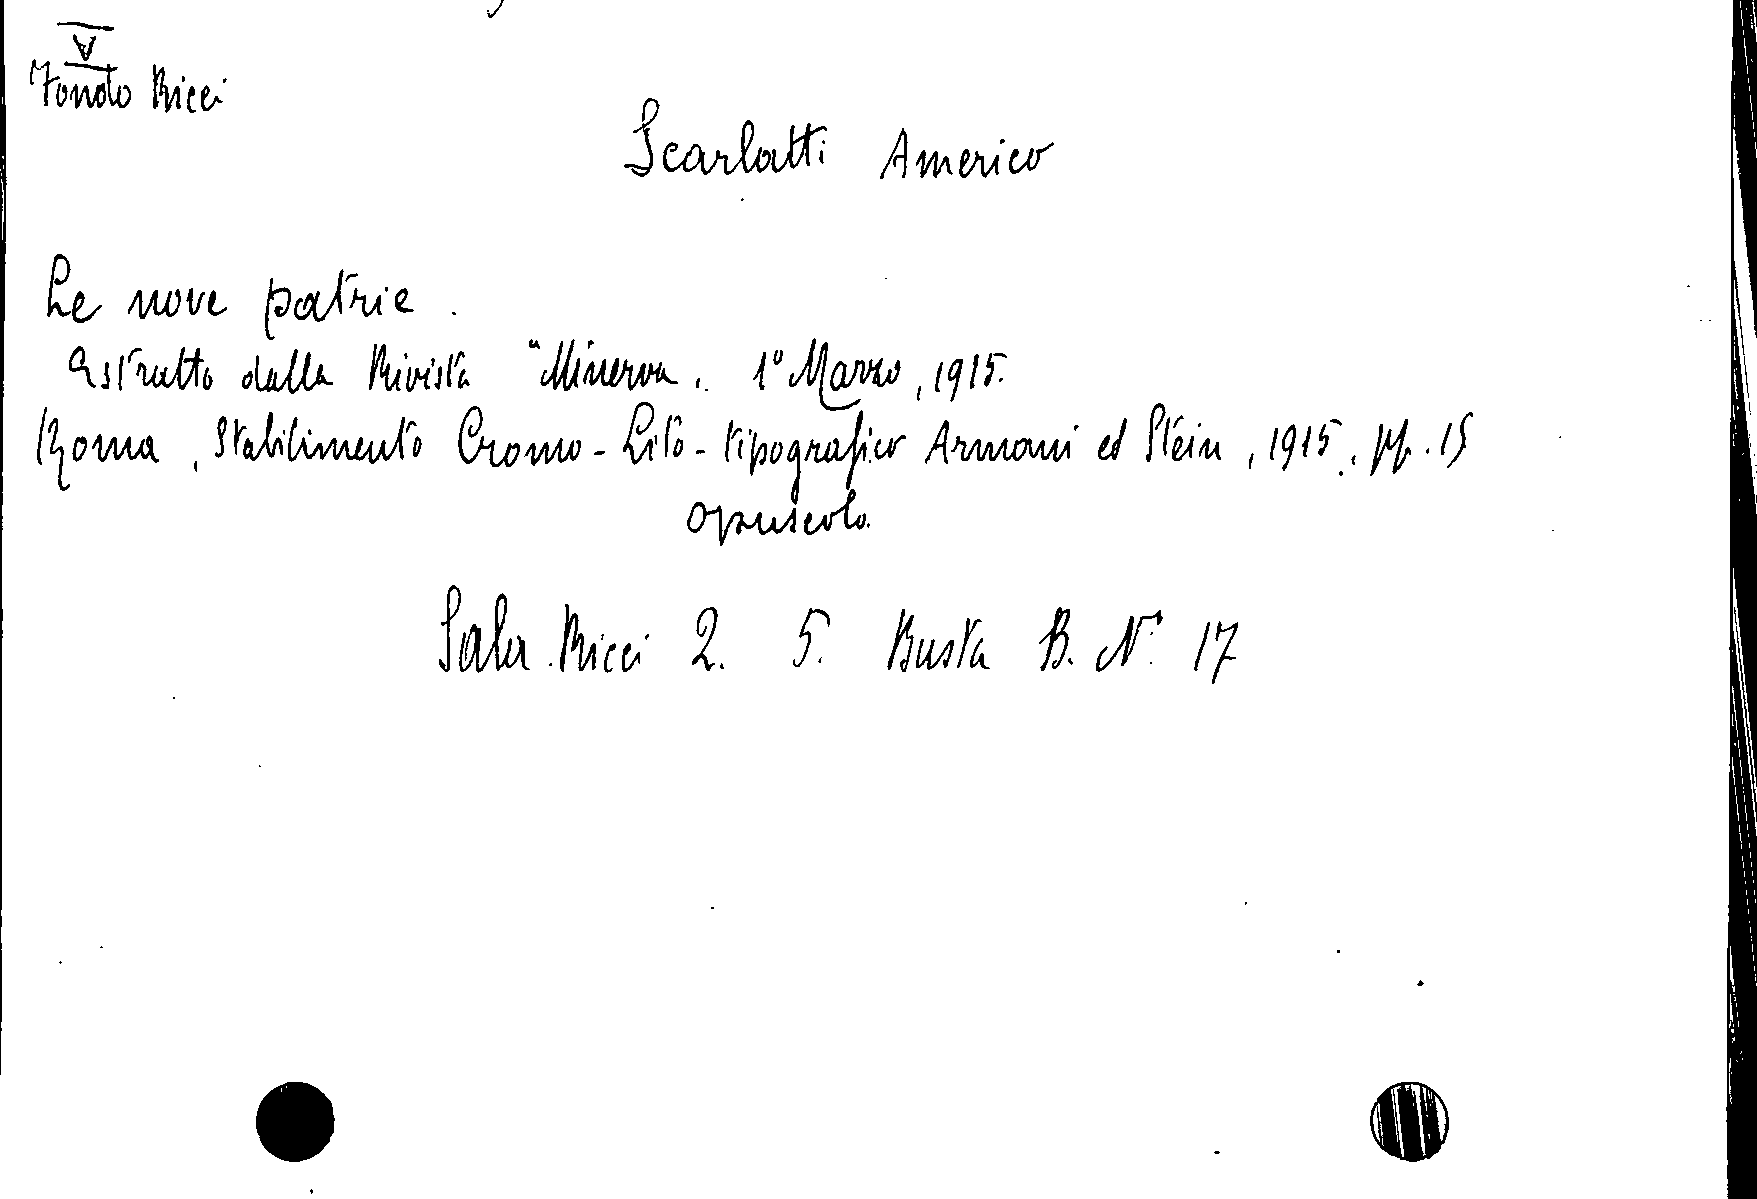 V
Fondo Ricci
Scarlatti Americo
Le nove patrie.
Estratto dalla Rivista "Minerva„ 1° Marzo, 1915.
Roma, Stabilimento Cromo-Lito-tipografico Armani et Stein, 1915, pp. 15
opuscolo.
Sala Ricci 2. 5. Busta B. N° 17